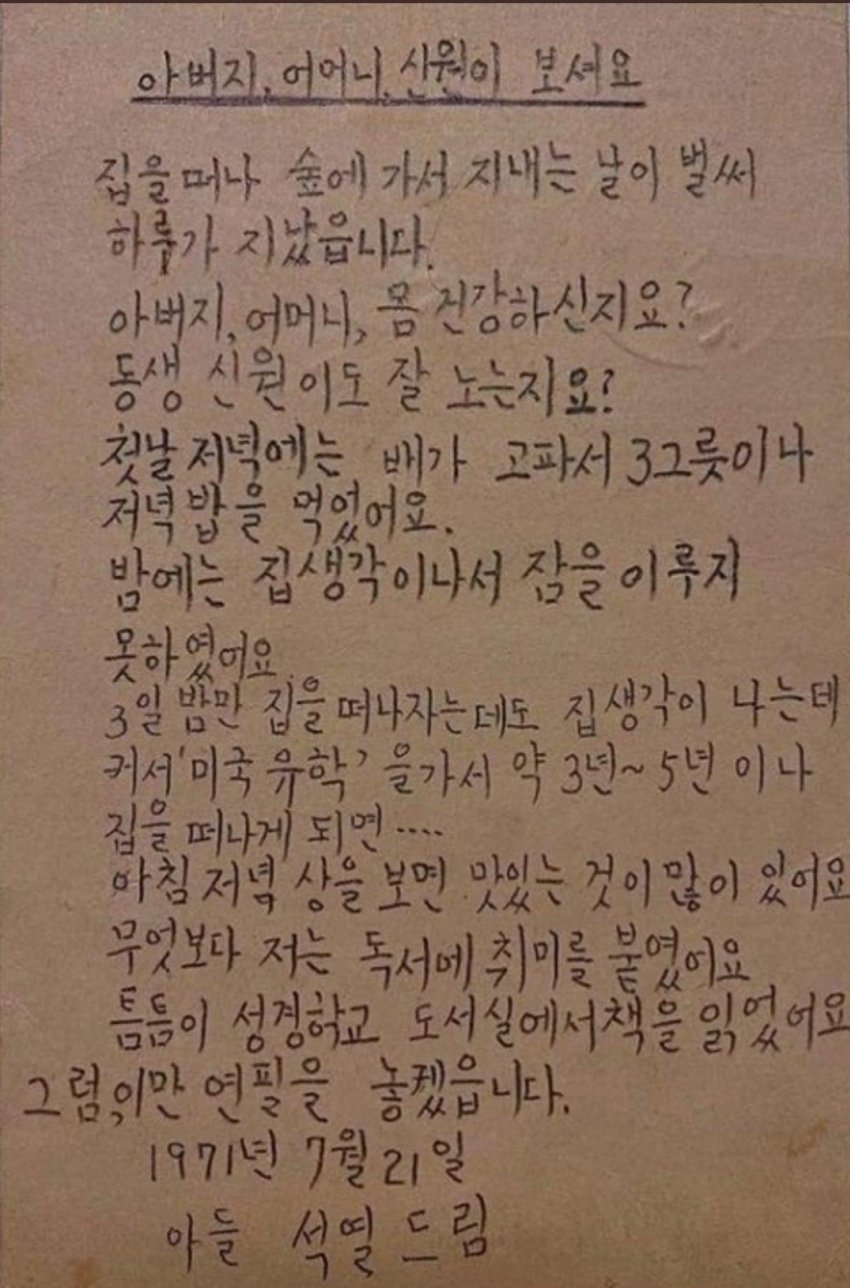 아버지, 어머니, 신원이 보셔요
집을 떠나 숲에 가서 지내는 날이 벌써
하루가 지났읍니다.
아버지, 어머니, 몸 건강하신지요?
동생 신원이도 잘 노는지요?
첫날 저녁에는 배가 고파서 3그릇이나
저녁 밥을 먹었어요.
밤에는 집생각이나서 잠을 이루지
못하였어요
3일 밤만 집을 떠나자는데도 집생각이 나는데
커서 '미국 유학' 을가서 약 3년~5년 이나
집을 떠나게 되면····
아침 저녁 상을 보면 맛있는 것이 많이 있어요
무엇보다 저는 독서에 취미를 붙였어요
틈틈이 성경학교 도서실에서 책을 읽었어요
그럼, 이만 연필을 놓겠읍니다.
1971년 7월 21일
아들 석열 드림